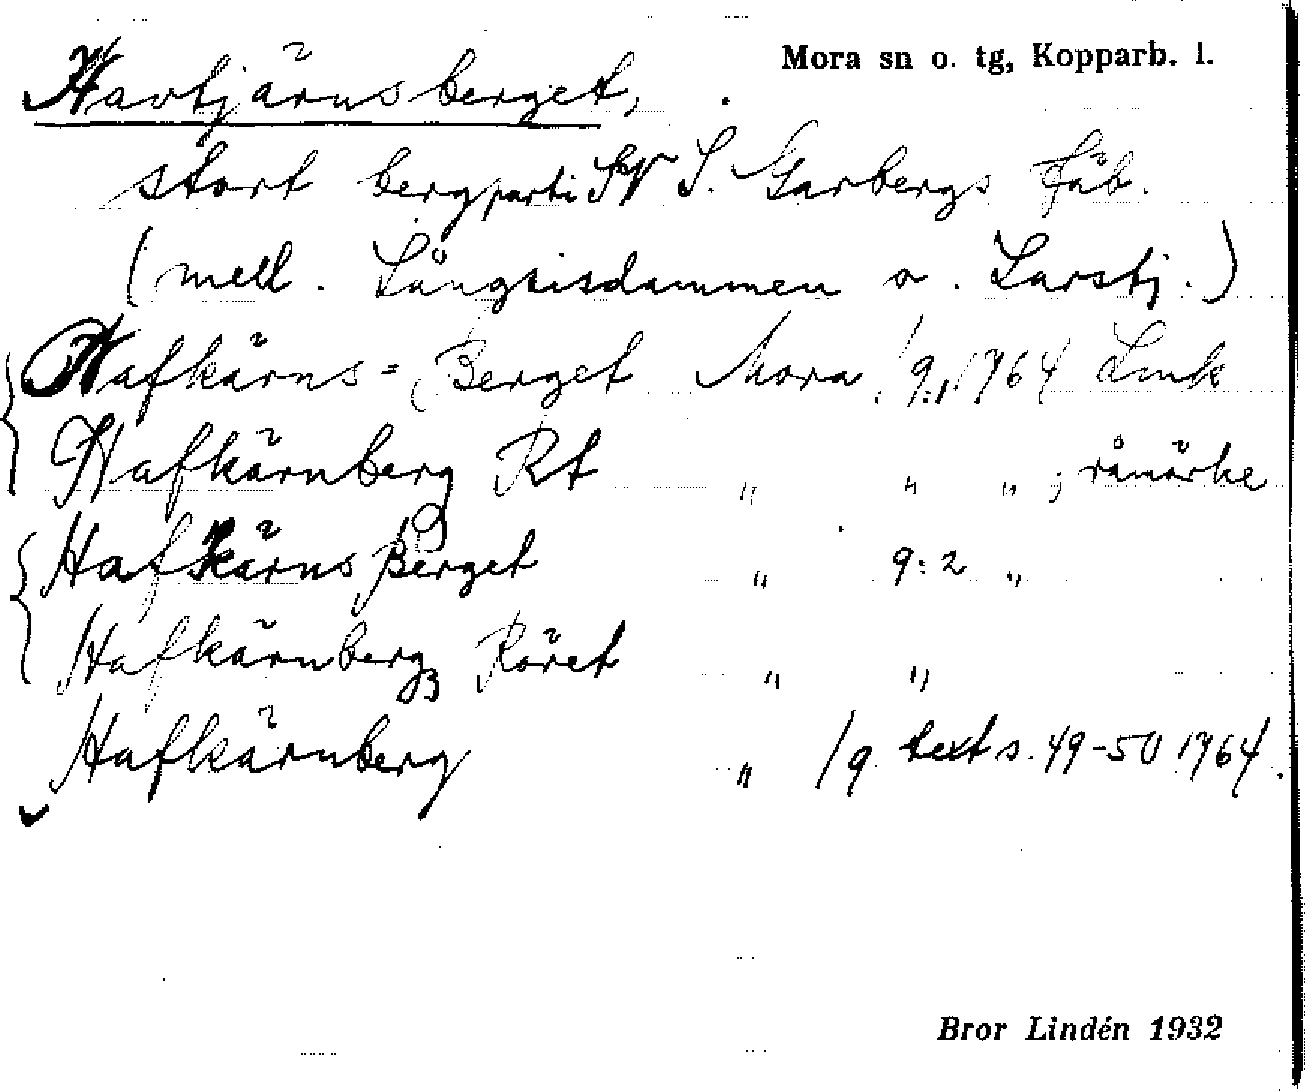 Mora sn o. tg, Kopparb. l.
Havtjärnsberget,
stort bergparti SV S. Garbergs fäb.
(mell. Långsisdammen o. Larstj.)
Hafkärns=Berget Mora /9:1 1764 Lmk
Hafkärnberg Rt " " " ; råmärke
Hafkärns Berget " 9:2 "
Hafkärnberg Röret " "
Hafkärnberg " /9 text s. 49-50 1764.
Bror Lindén 1932